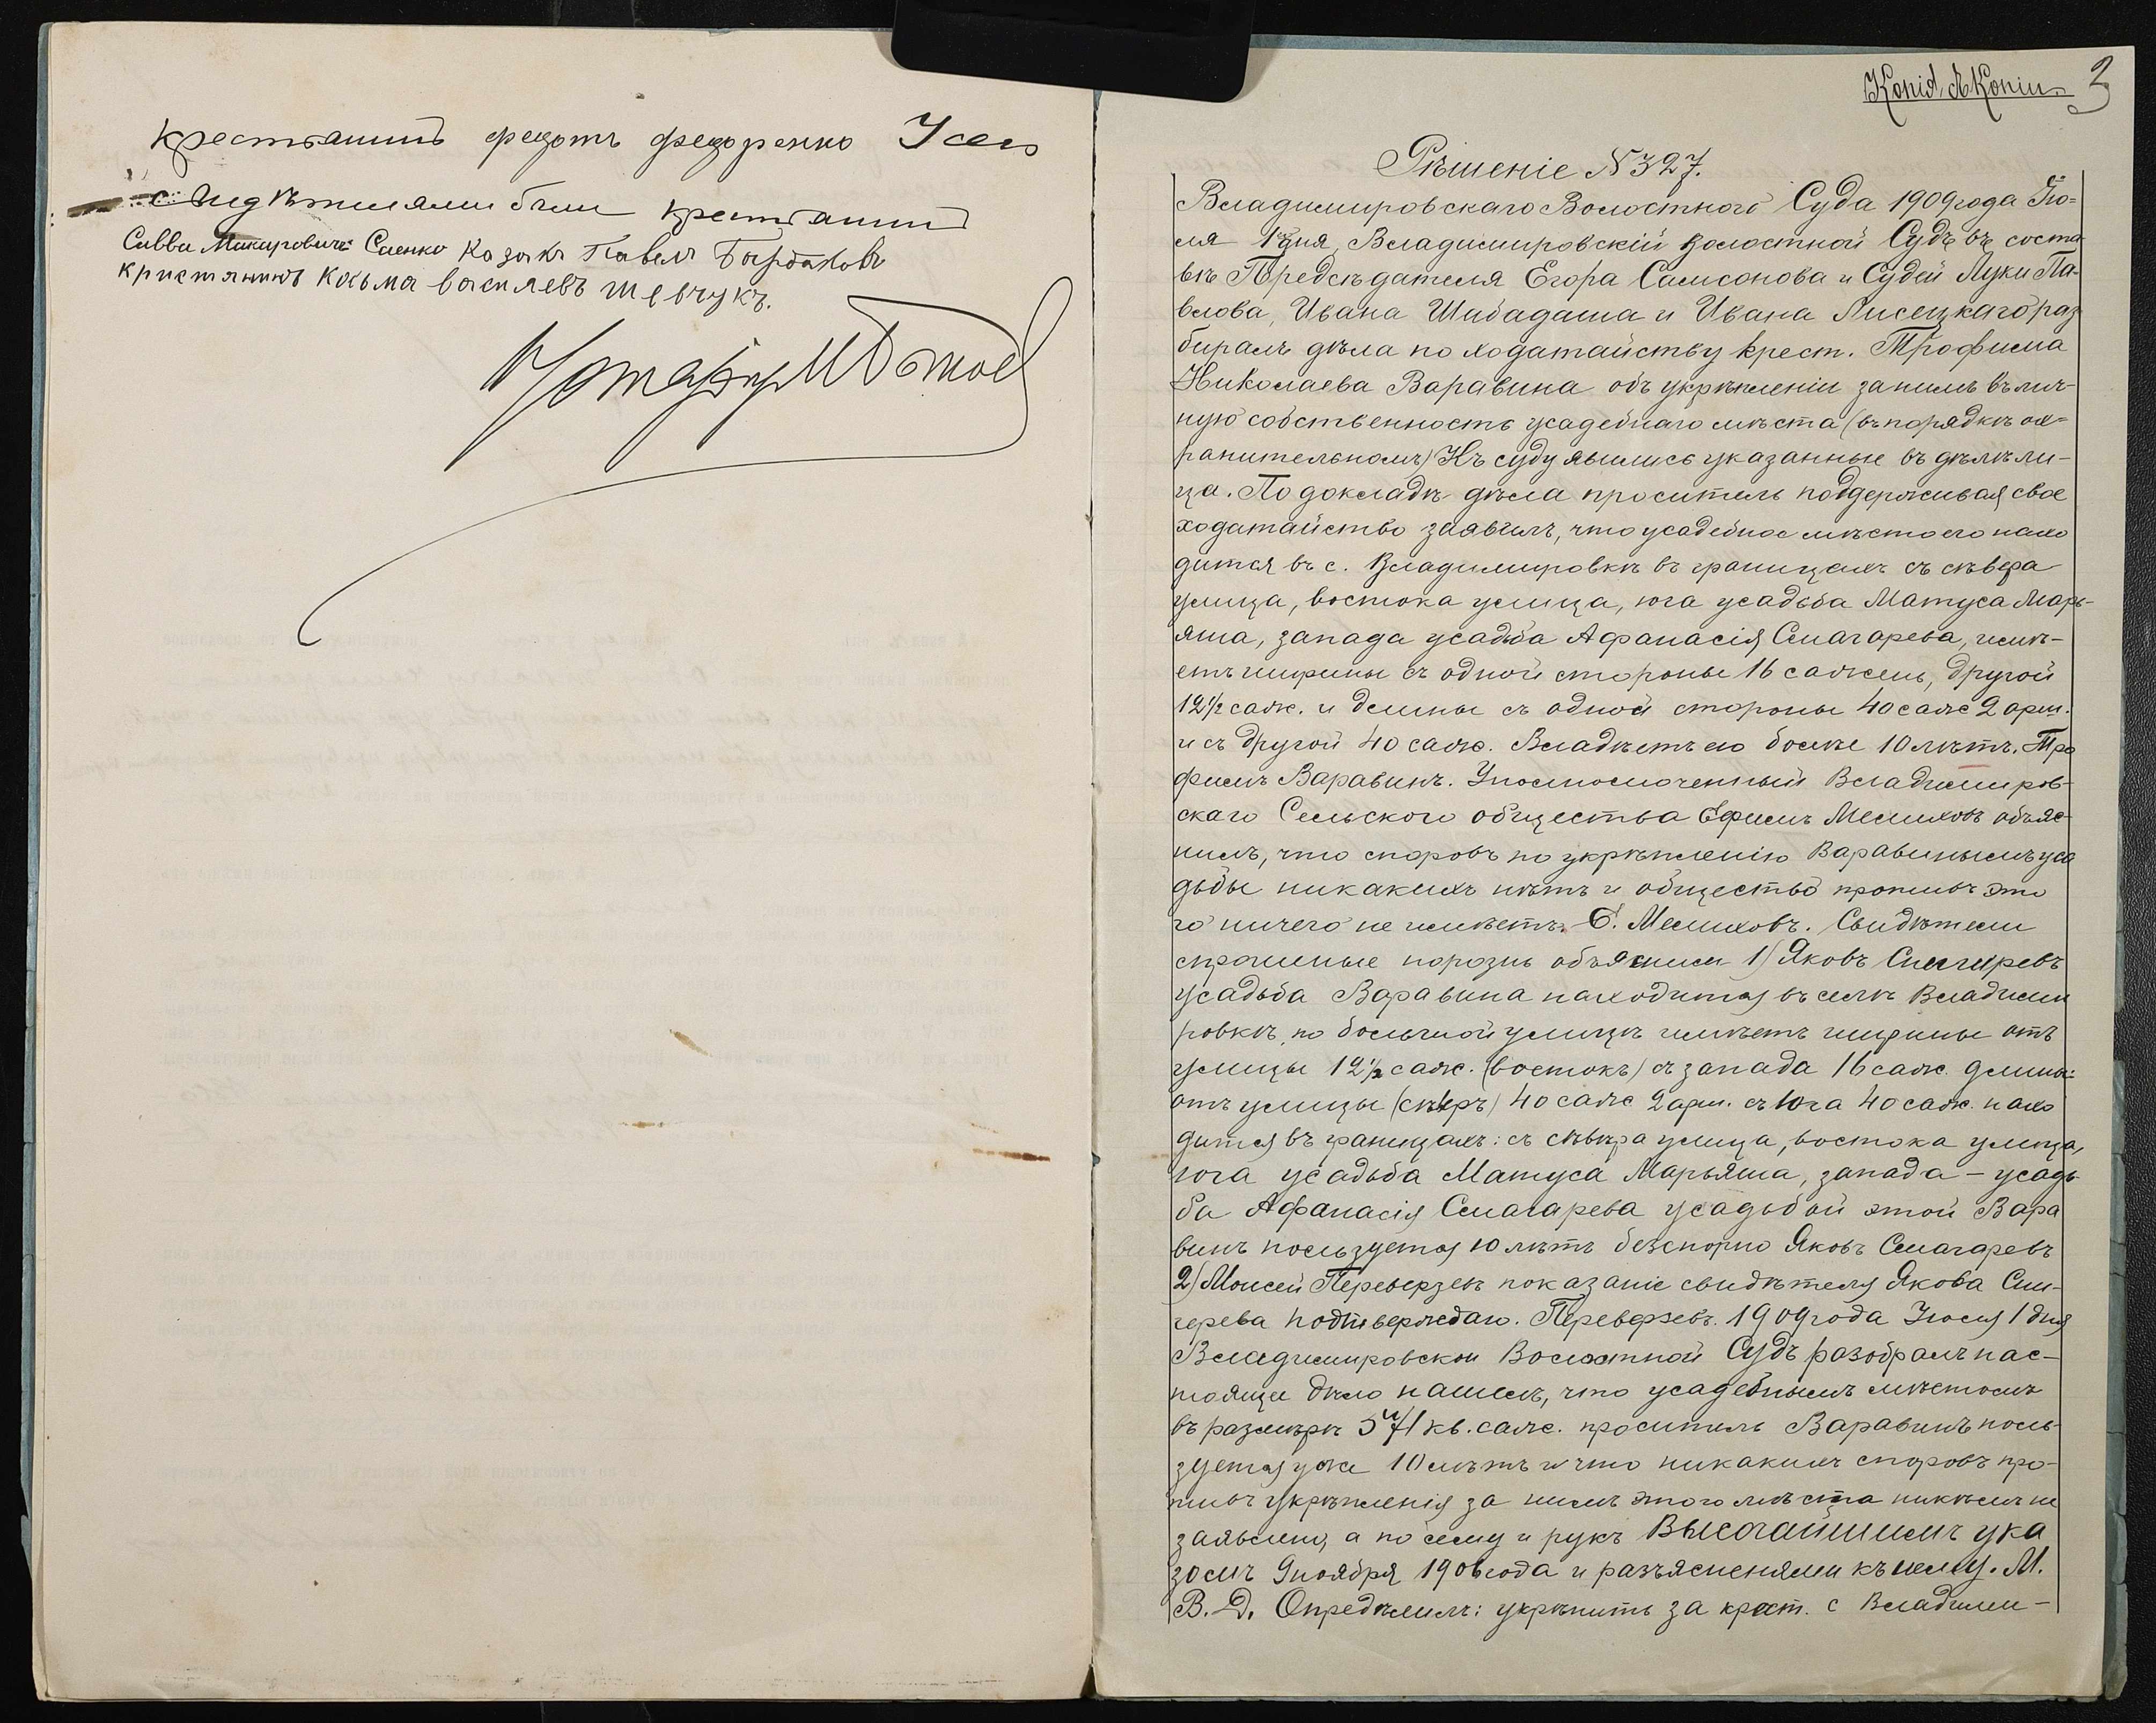 крестьянинъ федотъ федоренко Усего
свидѣтелями были крестьянинъ
Савва Макаровичъ Саенко Козакъ Павелъ Бардаковъ
кристянинъ Козьма василяевъ шевчукъ.
Нотаріусъ
Копія съ Копіи 3
Рѣшеніе N 327.
Владимировскаго Волостного Суда 1909 года Iю=
ля 1 дня, Владимировскій Волостной Судъ въ соста
вѣ Предсѣдателя Егора Самсонова и Судей Луки Па-
влова, Ивана Шибадаша и Ивана Лисецкаго раз
биралъ дѣла по ходатайству крест. Трофима
Николаева Варавина объ укрѣпленіи за нимъ въ лич-
ную собственность усадебнаго мѣста (въ порядкѣ ох=
ранительномъ) Къ суду явились указанные въ дѣлѣ ли-
ца. По докладѣ дѣла проситель поддерживая свое
ходатайство заявилъ, что усадебное мѣсто его нахо
дится въ с. Владимировкѣ въ границахъ съ сѣвера
улица, востока улица, юга усадьба Матуса Марь-
яша, запада усадьба Афанасія Смагарева, имѣ-
етъ ширины съ одной стороны 16 сажень, другой
12½ саж. и длины съ одной стороны 40 саж 2 арш.
и съ другой 40 саж. Владѣетъ ею болѣе 10 лѣтъ. Тро
фимъ Варавинъ. Уполномоченный Владимиров-
скаго Сельского общества Ефимъ Мелиховъ объяс-
нилъ, что споровъ по укрѣпленію Варавинымъ уса
дьбы никакихъ нѣтъ и общество противъ это
го ничего не имѣетъ. Е. Мелиховъ. Свидѣтели
спрошные порознь объяснили 1) Яковъ Снегиревъ
усадьба Варавина находится въ селѣ Владими
ровкѣ, по большой улицѣ имѣетъ ширины отъ
улицы 12½ саж. (востокъ) съ запада 16 саж. длины:
отъ улицы (сѣверъ) 40 саж 2 арш. съ юга 40 саж. нахо
дится въ границахъ: съ сѣвера улица, востока улица,
юга усадьба Матуса Марьяша, запада – усадь-
ба Афанасія Смагарева усадьбой этой Вара
винъ пользуется 10 лѣтъ безспорно Яковъ Смагаревъ
2) Моисей Переверзевъ показаніе свидѣтеля Якова Сни-
герева подтверждаю. Переверзевъ. 1909 года Iюля 1 дня
Владимировскои Волостной Судъ разобралъ нас-
тоящее дѣло нашелъ, что усадебнымъ мѣстомъ
въ размѣрѣ 571 кв. саж. проситель Варавинъ поль-
зуется уже 10 лѣтъ и что никакихъ споровъ про-
тивъ укрѣпленія за нимъ этого мѣста никѣмъ не
заявлено, а по сему и рук Высочайшимъ ука
зомъ 9 ноября 1906 года и разъясненями къ нему. М.
В. Д. Опредѣлилъ: укрѣпить за крест. с Владими-